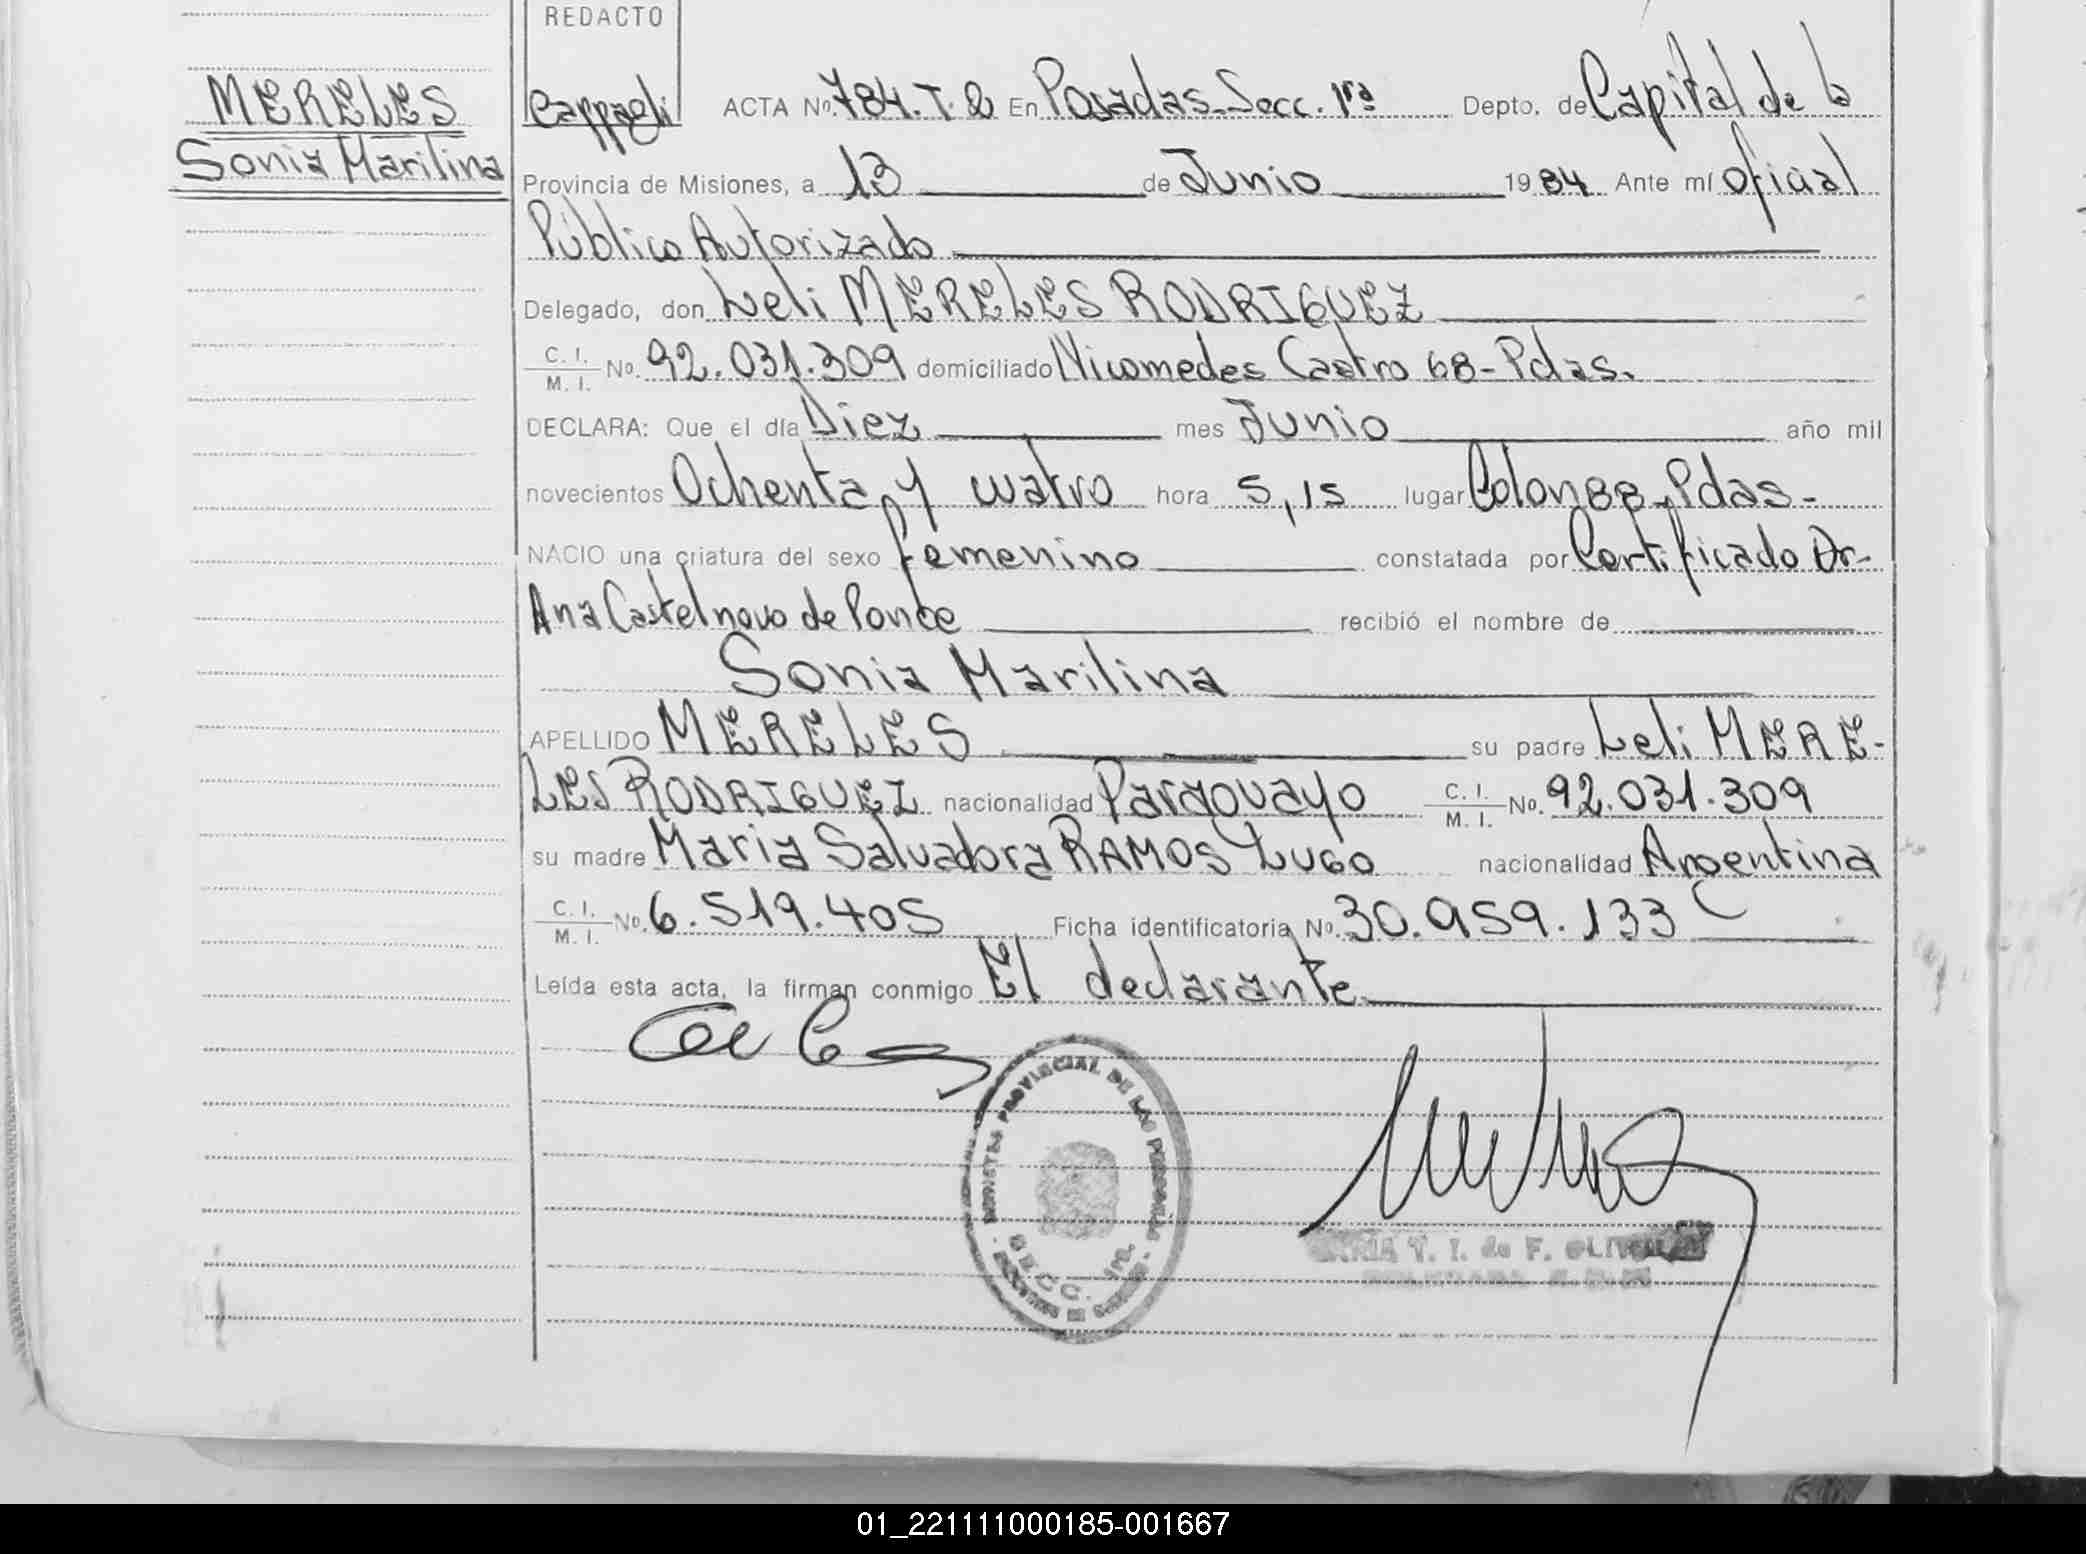 REDACTO
MERELES
Sonia Marilina
Cappagli
ACTA Nº. 784. T. 2 En Posadas-Secc. 1ra Depto. de Capital de la
Provincia de Misiones, a 13 de Junio 1984 Ante mí Oficial
Público Autorizado
Delegado, don Leli MERELES RODRIGUEZ
C. I. M. I. Nº. 92.031.309 domiciliado Nicomedes Castro 68-Pdas.
DECLARA: Que el día Diez mes Junio año mil
novecientos Ochenta y cuatro hora 5,15 lugar Colon 88-Pdas-
NACIO una criatura del sexo femenino constatada por Certificado Dr-
Ana Castelnovo de Ponce recibió el nombre de
Sonia Marilina
APELLIDO MERELES su padre Leli MERE-
LES RODRIGUEZ nacionalidad Paraguayo C. I. M. I. Nº. 92.031.309
su madre Maria Salvadora RAMOS LUGO nacionalidad Argentina
C. I. M. I. Nº. 6.519.405 Ficha identificatoria Nº. 30.959.133
Leída esta acta, la firman conmigo El declarante
REGISTRO PROVINCIAL DE LAS PERSONAS
SECC. 1ra.
T. I. de F. OLIVERA
01_221111000185-001667